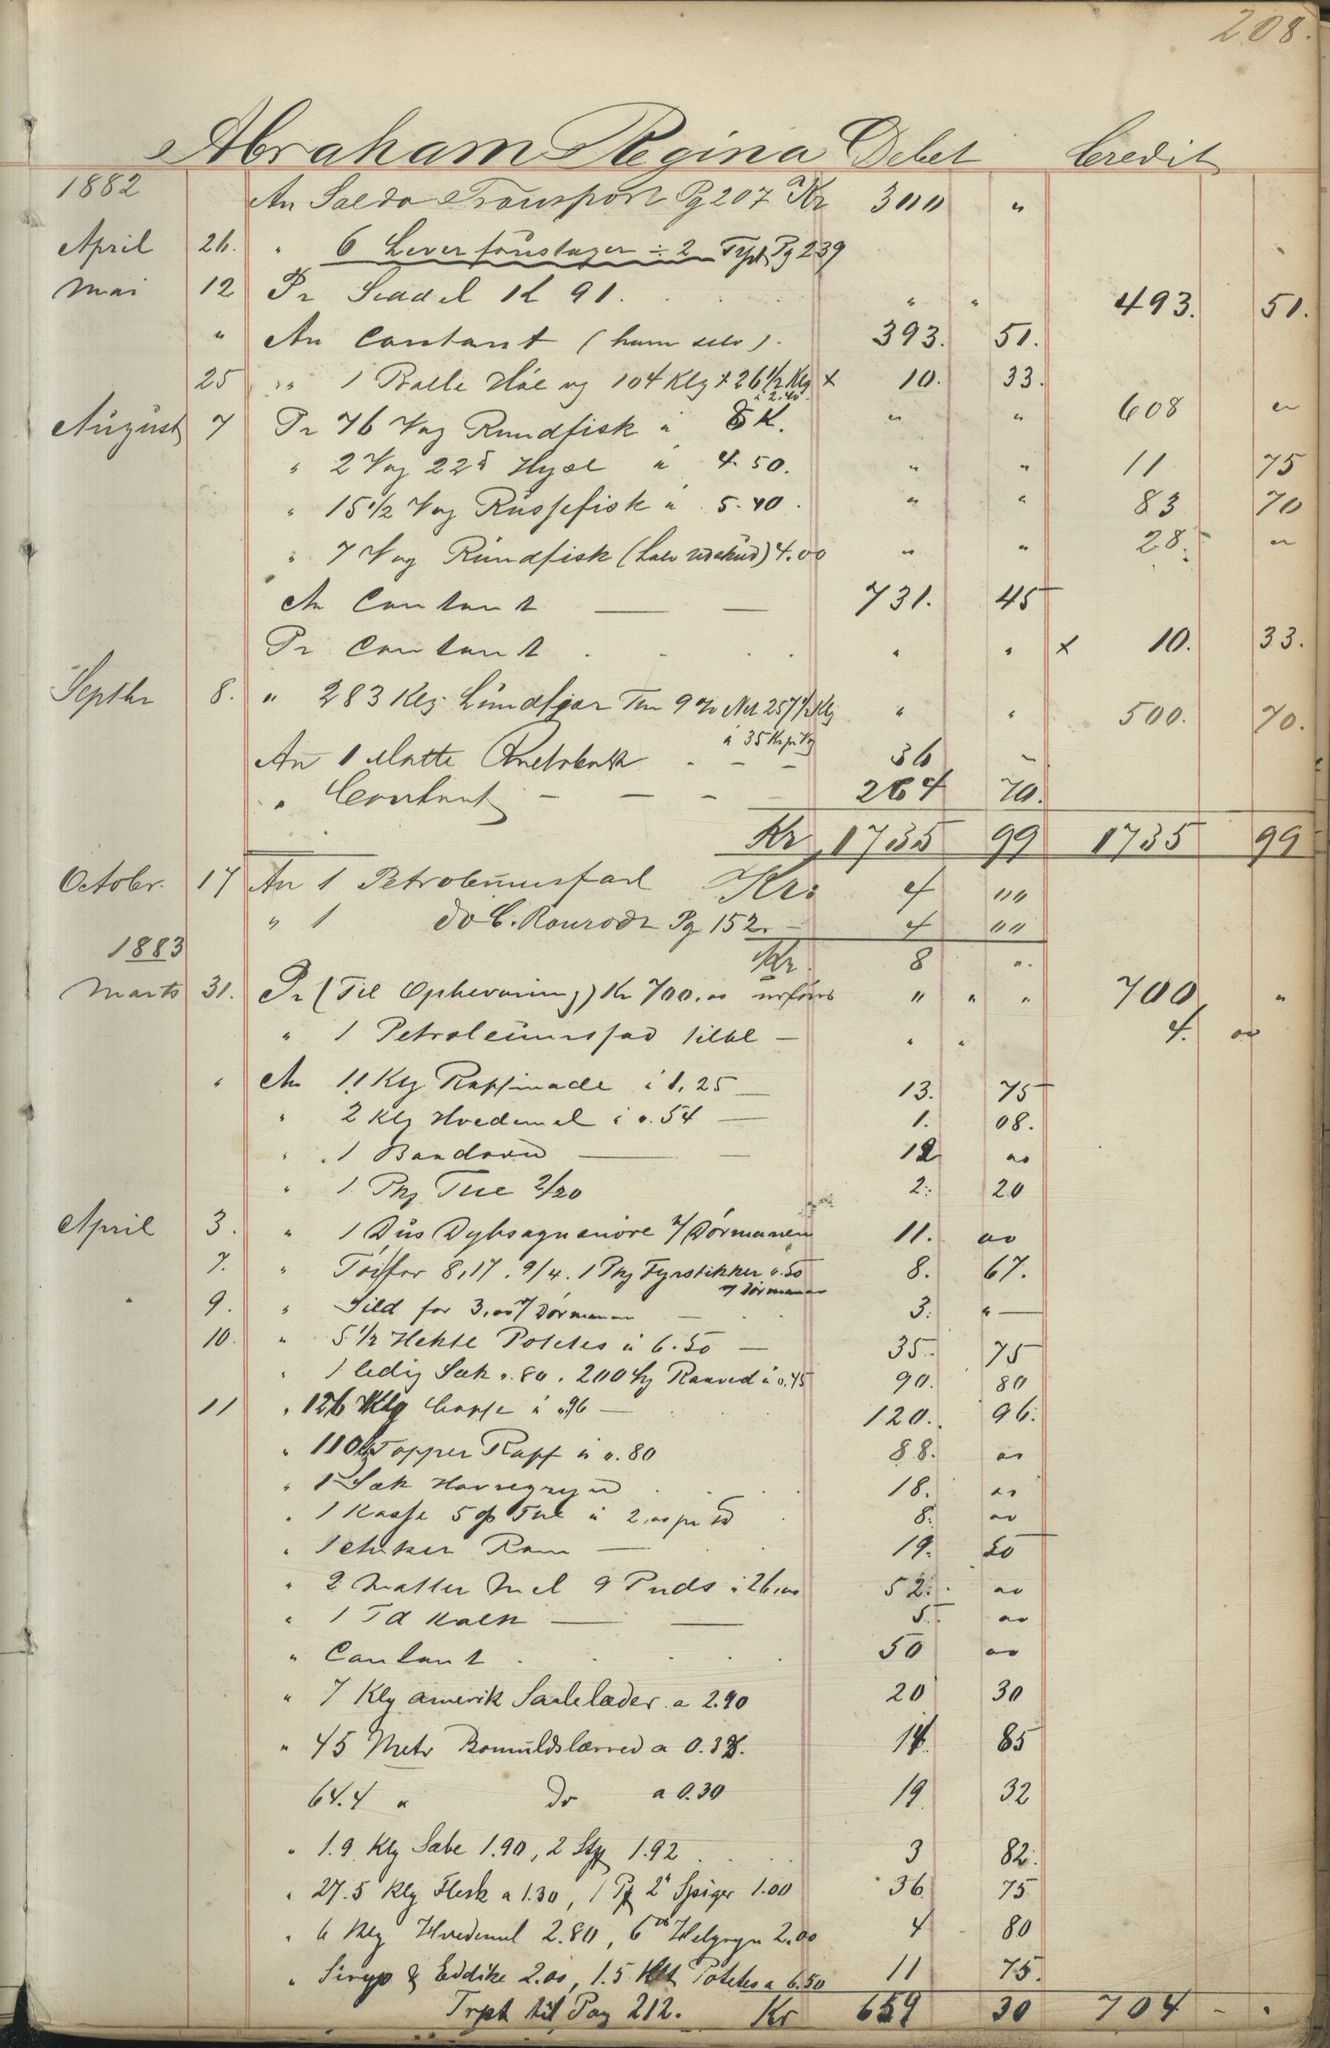 208.
Abraham Regina Debet Credit
1882 An Saldo Transport Pg 207 Kr 300 "
April 26. " 6 Lever ÷ 2 Trpt Pg 239
Mai 12 Pr Seddel 1d 91. " " 493. 51.
" An Contant (ham selv). 393. 51.
25 " 1 Balle Höe og 104 Klg x 26 1/2 Klg x 10. 33.
à 2.40
August 7 Pr 76 Vog Rundfisk à 8 K. " " 608 "
" 2 Vog 22 Hyse à 4.50. " " 11 75
" 15 1/2 Vog Russefisk à 5.40. " " 83 70
" 7 Vog Rundfisk (Lav udskud) 4.00 " " 28. "
An Contant — — 731. 45
Pr Contant . . . " " x 10. 33.
Septbr 8. " 283 Klg. Lundfjær 9 % Net 257 1/2 Klg " " 500. 70.
à 35 Kr pr Vog
An 1 Matte - - - 36 "
" Contant — — - - 264 70.
Kr 1735 99 1735 99
Octobr. 17 An 1 Petroleumsfad Kr: 4 ""
" 1 do C. Pg 152. — 4 00
1883 Kr. 8 "
Marts 31. Pr (Til Ophevaring) Kr 700.00 " " " 700 "
" 1 Petroleumsfad — " " 4. 00
" An 11 Klg Raffinade à 1,25 — 13. 75
" 2 Klg Hvedemel à 0.54 — 1. 08.
" 1 — — 12 00
" 1 Pkg Thee 2/20 2. 20
April 3. " 1 Dus Dybsagnsnöre v/ Dörmanen 11. 00
7. " for 8,17. 9/4. 1 Pkg Fyrstikker 0.50 8. 67.
v/ Dörmanen
9. " Sild for 3,00 v/ Dörmanen — 3. " —
10. " 5 1/2 Hektl Potetes à 6.50 — 35. 75
" 1 ledig Sæk 0.80. 200 Raaved à 0.45 90. 80
11 " 126 Klg Caffe à 0.96 — 120. 96.
" 110 Topper Raff à 0.80 88. 00
" 1 Sæk Havregryn . . . 18. 00
" 1 Kasse 5 Thee à 2.00 pr 8. 00
" 1 Anker Rom — . . 19. 50
" 2 Matter Mel 9 Puds à 26,00 52. 00
" 1 Td Kalk — — 5. 00
" Contant . . . . 50 00
" 7 Klg amerik Saalelæder a 2.90 20 30
" 45 Metr Bomuldslærred a 0.33. 14. 85
64.4 " Do a 0.30 19. 32
" 1.9 Klg Sæbe 1.90, 2 1.92 . . . 3 82.
" 27.5 Klg Flesk a 1.30, 1 2" Spiger 1.00 36 75
" 6 Klg Hvedemel 2.80, 6 do Helgryn 2.00 4 80
" Sirup & Eddike 2.00, 1.5 Hkt Potetes a 6.50 11 75.
Trpt til Pag 212. Kr 659 30 704 - .